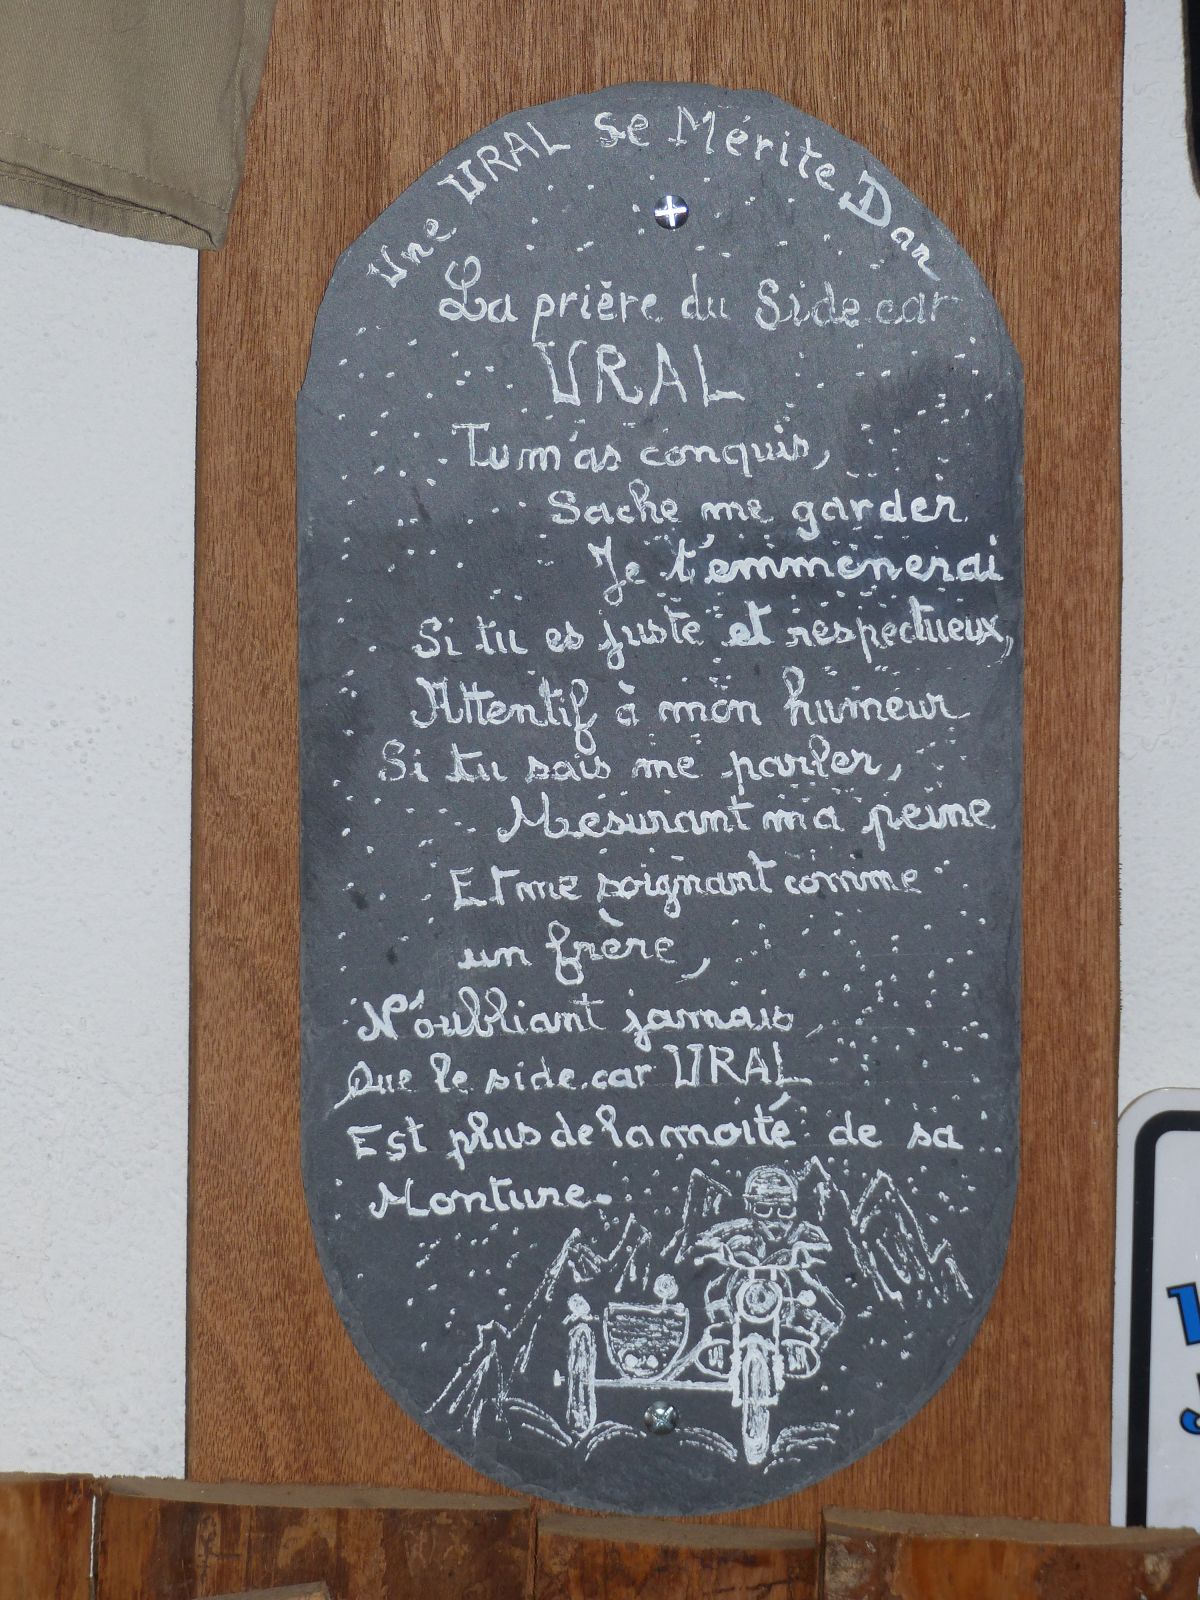 Une URAL Se Mérite Dan
La prière du Side.car
URAL
Tu m'as conquis,
Sache me garder
Je t'emmènerai
Si tu es juste et respectueux,
Attentif à mon humeur
Si tu sais me parler,
Mesurant ma peine
Et me soignant comme
un frère,
N'oubliant jamais
Que le side.car URAL
Est plus de la moité de sa
Monture.